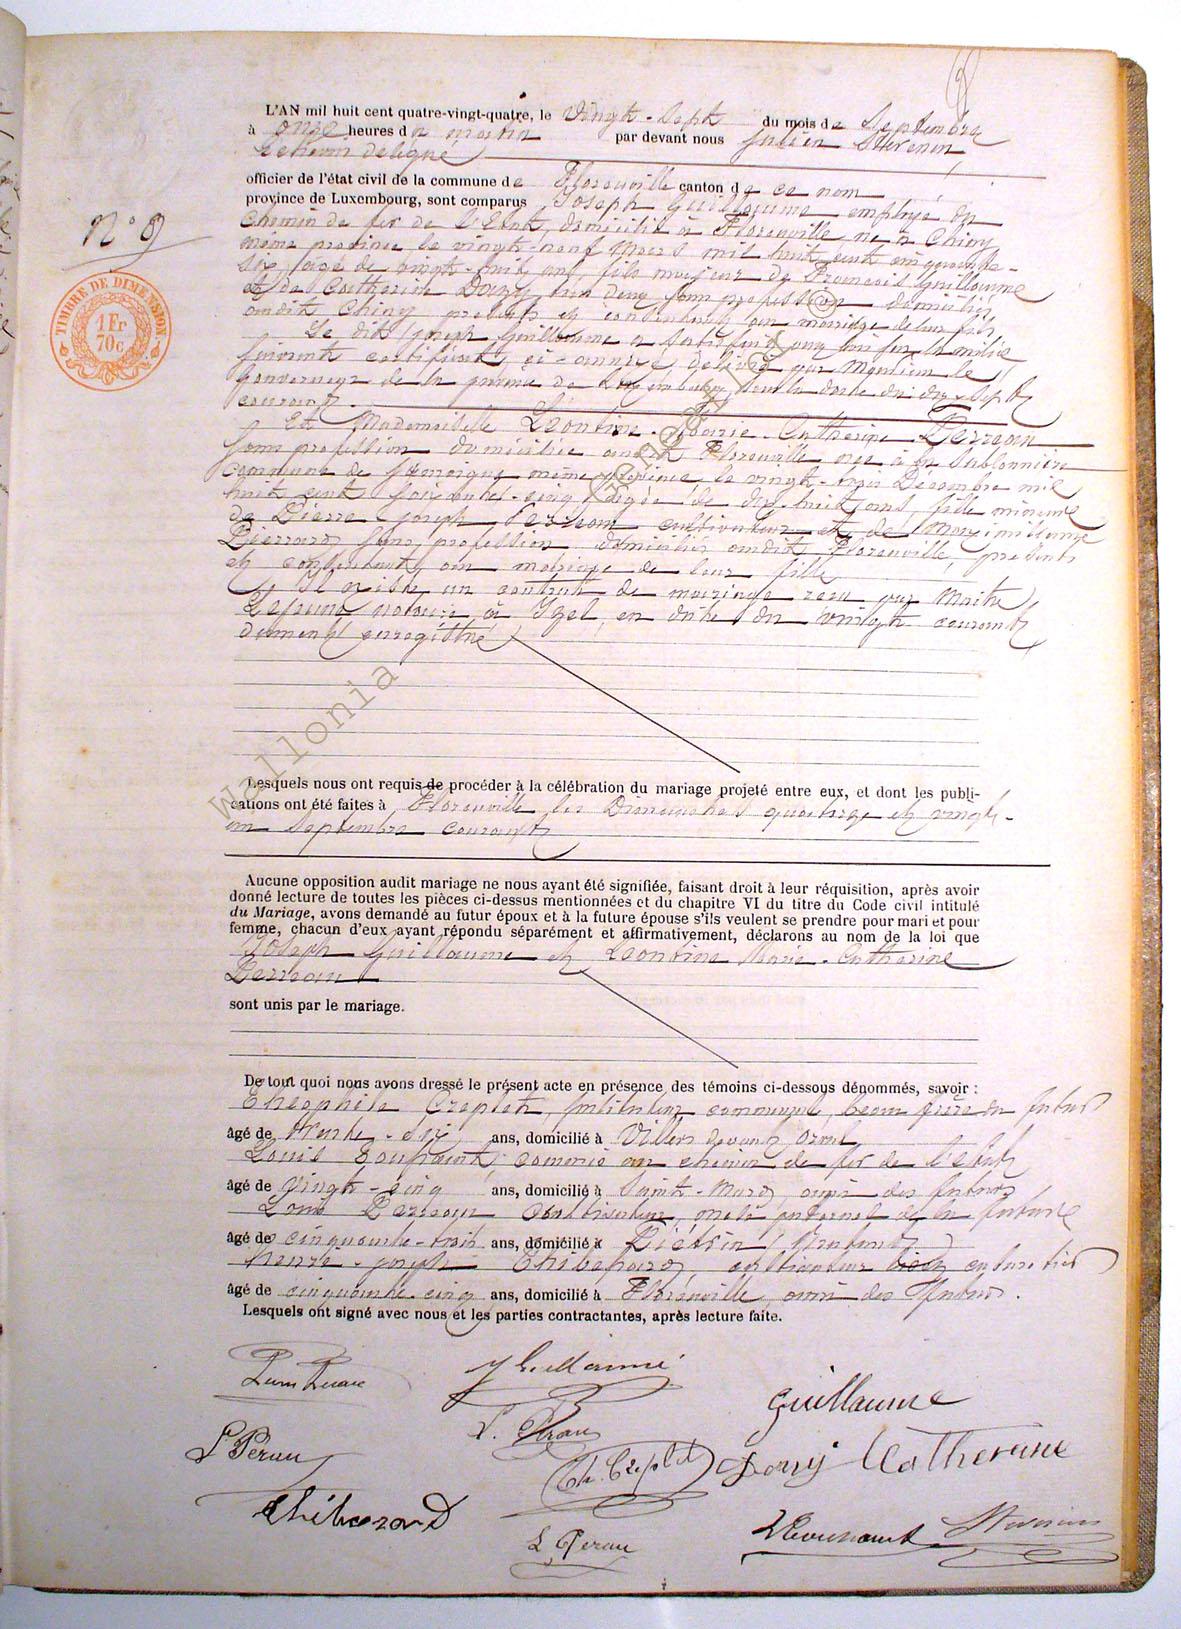 L'AN mil huit cent quatre-vingt-quatre, le vingt-sept du mois de Septembre
à onze heures du matin par devant nous Julien
Echevin délégué
officier de l'état civil de la commune de Florenville canton de ce nom
province de Luxembourg, sont comparus Joseph Guillaume employé du
N° 9
TIMBRE DE DIMENSION
1 Fr
70c
chemin de fer de l'Etat, domicilié à Florenville né à Chiny
même province le vingt-neuf Mars mil huit cent cinquante-
six, âgé de vingt-huit ans, fils majeur de François Guillaume
et de Catherine Dony tous deux sans profession domiciliés
audit Chiny présents et consentants au mariage de leur fils
Le dit Joseph Guillaume a satisfait aux lois sur la milice
suivant certificat, ci-annexé, délivré par Monsieur le
Gouverneur de la province de Luxembourg, sous la date du dix-sept
courant.
Et Mademoiselle Léontine-Marie-Catherine Perreau
sans profession domiciliée audit Florenville née à la Sablonnière
commune de même province, le vingt-trois Décembre mil
huit cent soixante-cinq, âgée de dix-huit ans, fille mineure
de Pierre-Joseph Perreau cultivateur et de Maximilienne
Pierrard, sans profession domiciliés audit Florenville, présents
et consentant au mariage de leur fille
Il existe un contrat de mariage reçu par Maître
Lejeune notaire à Izel, en date du vingt courant
dument enregistré
wallonia
Lesquels nous ont requis de procéder à la célébration du mariage projeté entre eux, et dont les publi-
cations ont été faites à Florenville les Dimanches quatorze et vingt-
un Septembre courant
Aucune opposition audit mariage ne nous ayant été signifiée, faisant droit à leur réquisition, après avoir
donné lecture de toutes les pièces ci-dessus mentionnées et du chapitre VI du titre du Code civil intitulé
du Mariage, avons demandé au futur époux et à la future épouse s'ils veulent se prendre pour mari et pour
femme, chacun d'eux ayant répondu séparément et affirmativement, déclarons au nom de la loi que
Joseph Guillaume et Léontine Marie-Catherine
Perreau
sont unis par le mariage.
De tout quoi nous avons dressé le présent acte en présence des témoins ci-dessous dénommés, savoir :
Théophile Creplet, instituteur communal, beau frère du futur
âgé de trente-six ans, domicilié à Villers devant Orval
Louis Toussaint, commis au chemin de fer de l'Etat
âgé de vingt-cinq ans, domicilié à Saint-Mard, ami des futurs
Louis Perreau, cultivateur, oncle paternel de la future
âgé de cinquante-trois ans, domicilié à
Henri-Joseph Thibesard, cultivateur
âgé de cinquante-cinq ans, domicilié à Florenville, ami des futurs.
Lesquels ont signé avec nous et les parties contractantes, après lecture faite.
J Guillaume
Guillaume
L Perau
Th. Creplet
Dony Catherine
Thibesard
L Perau